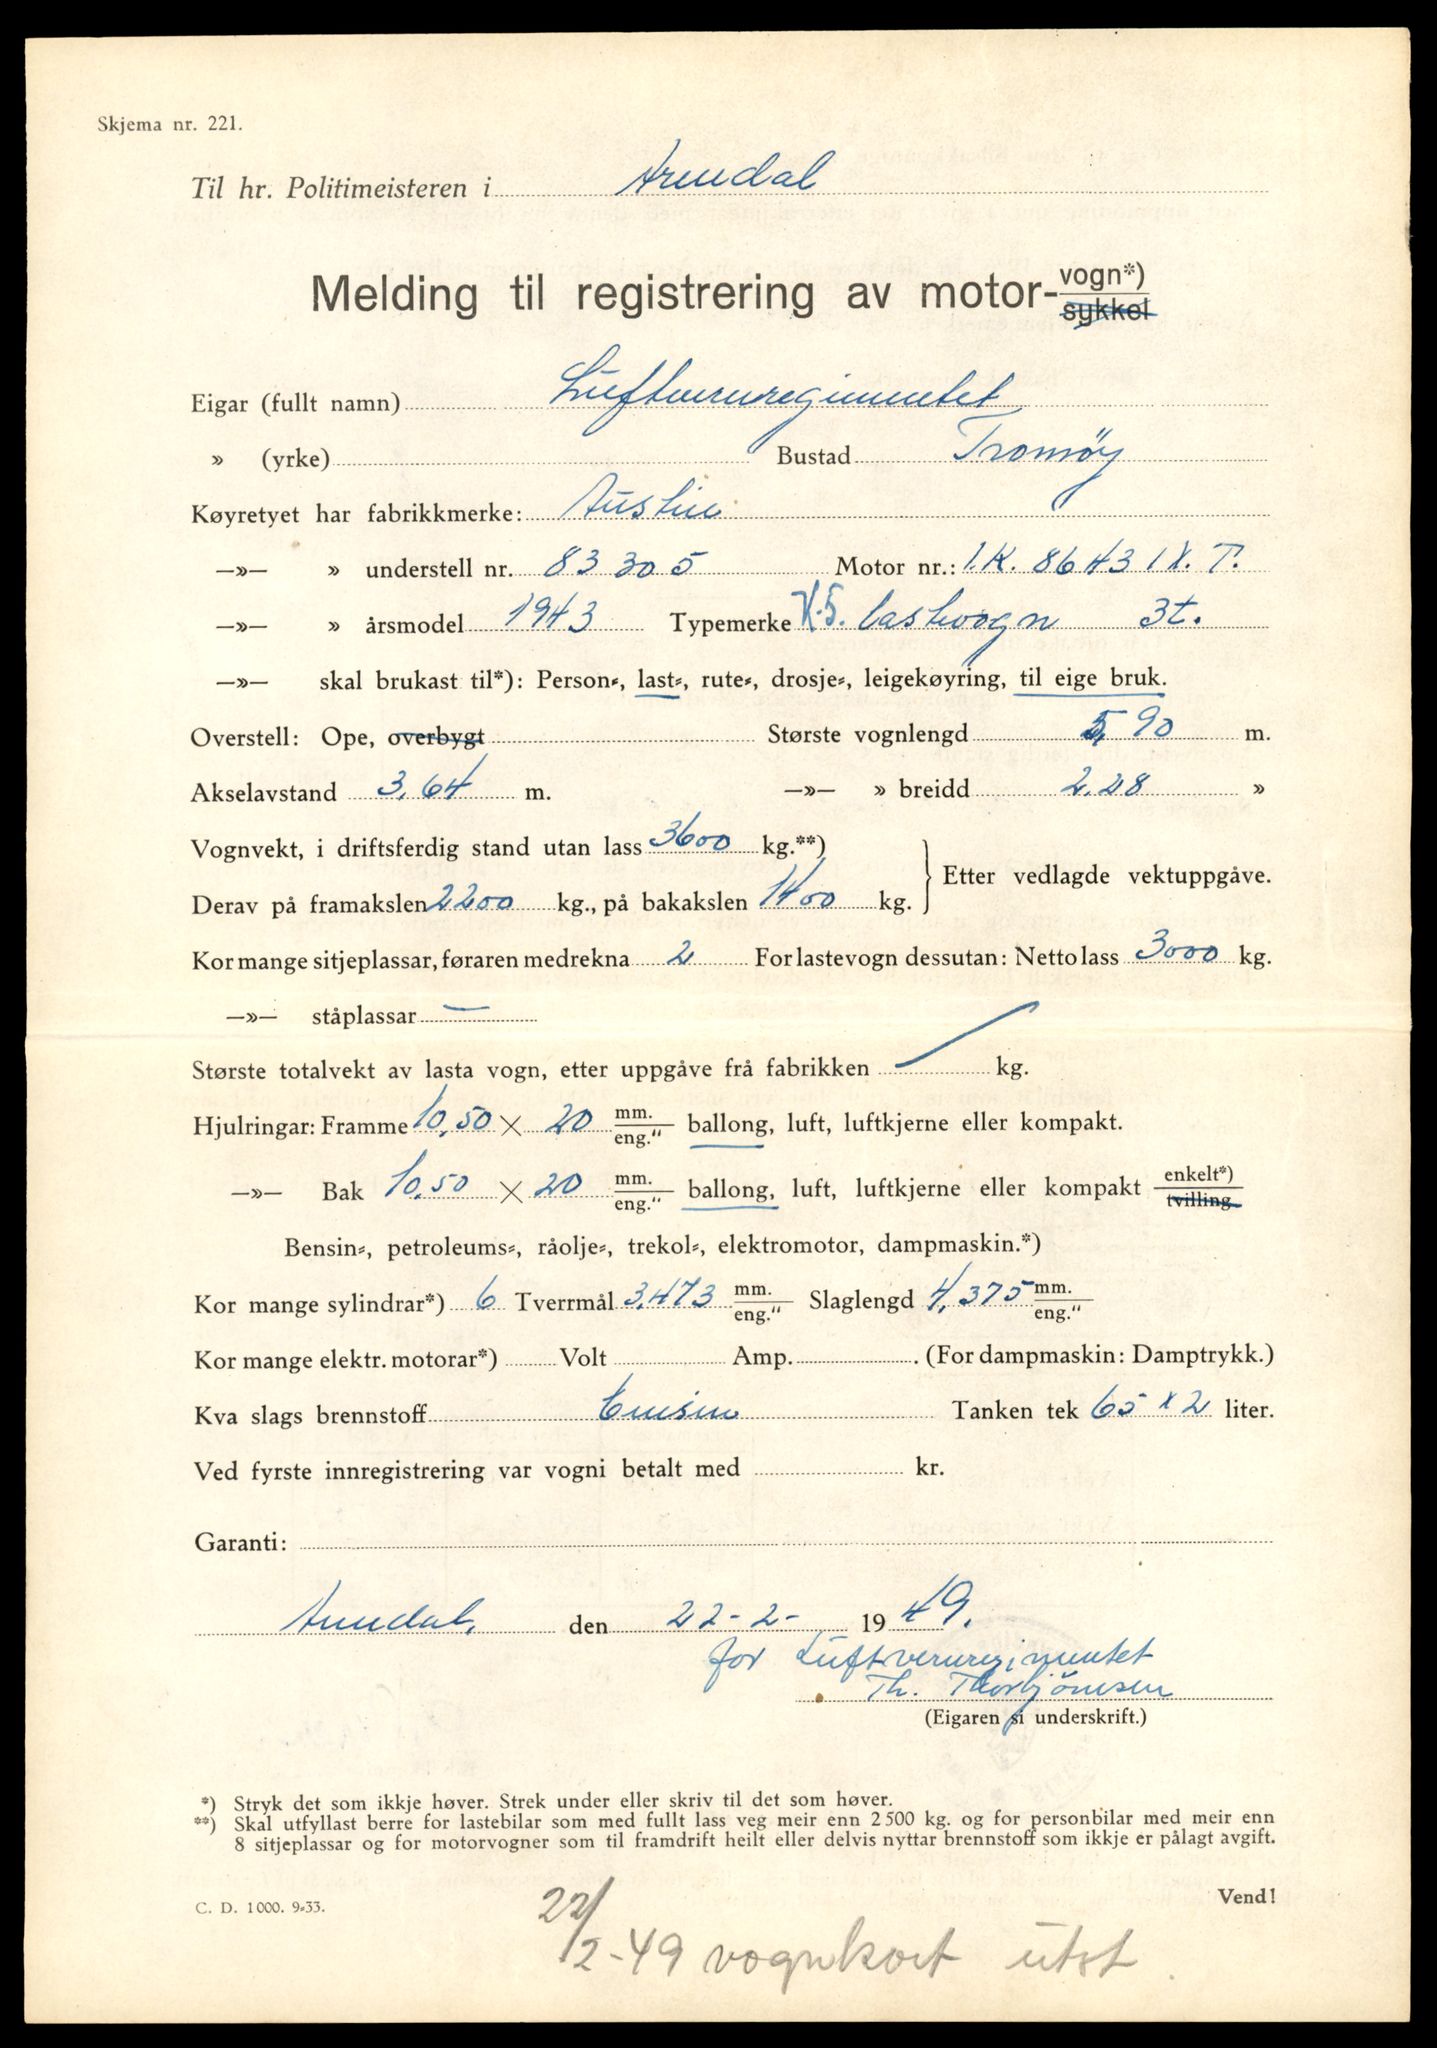 Skjema nr. 221.
Til hr. Politimeisteren i Arendal
Melding til registrering av motor-vogn*)
sykkel
Eigar (fullt namn) Luftvernregimentet
» (yrke) Bustad Tromøy
Køyretyet har fabrikkmerke: Austin
—»— » understell nr. 83305 Motor nr.: 1.K. 86431X.T.
—»— » årsmodel 1943 Typemerke K.5. lastvogn 3t.
—»— skal brukast til*): Person-, last-, rute-, drosje-, leigekøyring, til eige bruk.
Overstell: Ope, overbygt Største vognlengd 5,90 m.
Akselavstand 3.64 m. —»— » breidd 2.28 »
Vognvekt, i driftsferdig stand utan lass 3600 kg.**)
Derav på framakslen 2200 kg., på bakakslen 1400 kg. Etter vedlagde vektuppgåve.
Kor mange sitjeplassar, føraren medrekna 2 For lastevogn dessutan: Netto lass 3000 kg.
—»— ståplassar —
Største totalvekt av lasta vogn, etter uppgåve frå fabrikken kg.
Hjulringar: Framme 10,50 × 20 mm./eng." ballong, luft, luftkjerne eller kompakt.
—»— Bak 10,50 × 20 mm./eng." ballong, luft, luftkjerne eller kompakt enkelt*)
tvilling.
Bensin-, petroleums-, råolje-, trekol-, elektromotor, dampmaskin.*)
Kor mange sylindrar*) 6 Tverrmål 3,473 mm./eng." Slaglengd 4,375 mm./eng."
Kor mange elektr. motorar*) Volt Amp. . (For dampmaskin: Damptrykk.)
Kva slags brennstoff bensin Tanken tek 65 x 2 liter.
Ved fyrste innregistrering var vogni betalt med kr.
Garanti:
Arendal, den 22-2- 1949.
for Luftvernregimentet
Th. Thorbjörnsen
(Eigaren si underskrift.)
*) Stryk det som ikkje høver. Strek under eller skriv til det som høver.
**) Skal utfyllast berre for lastebilar som med fullt lass veg meir enn 2500 kg. og for personbilar med meir enn
8 sitjeplassar og for motorvogner som til framdrift heilt eller delvis nyttar brennstoff som ikkje er pålagt avgift.
C. D. 1000. 9-33. Vend!
22/2-49 vognkort utst.